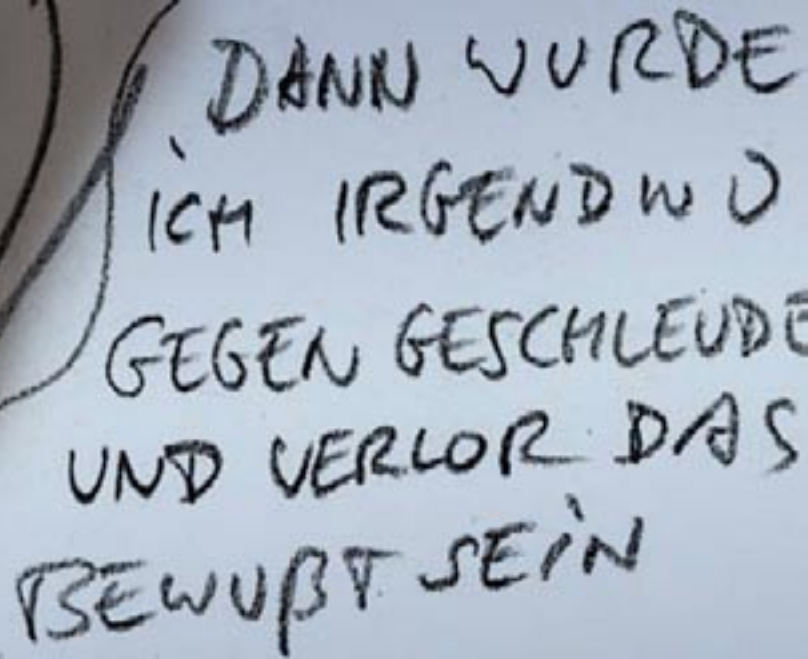 DANN WURDE
ICH IRGENDWO
GEGEN GESCHLEUDE
UND VERLOR DAS
BEWUßTSEIN